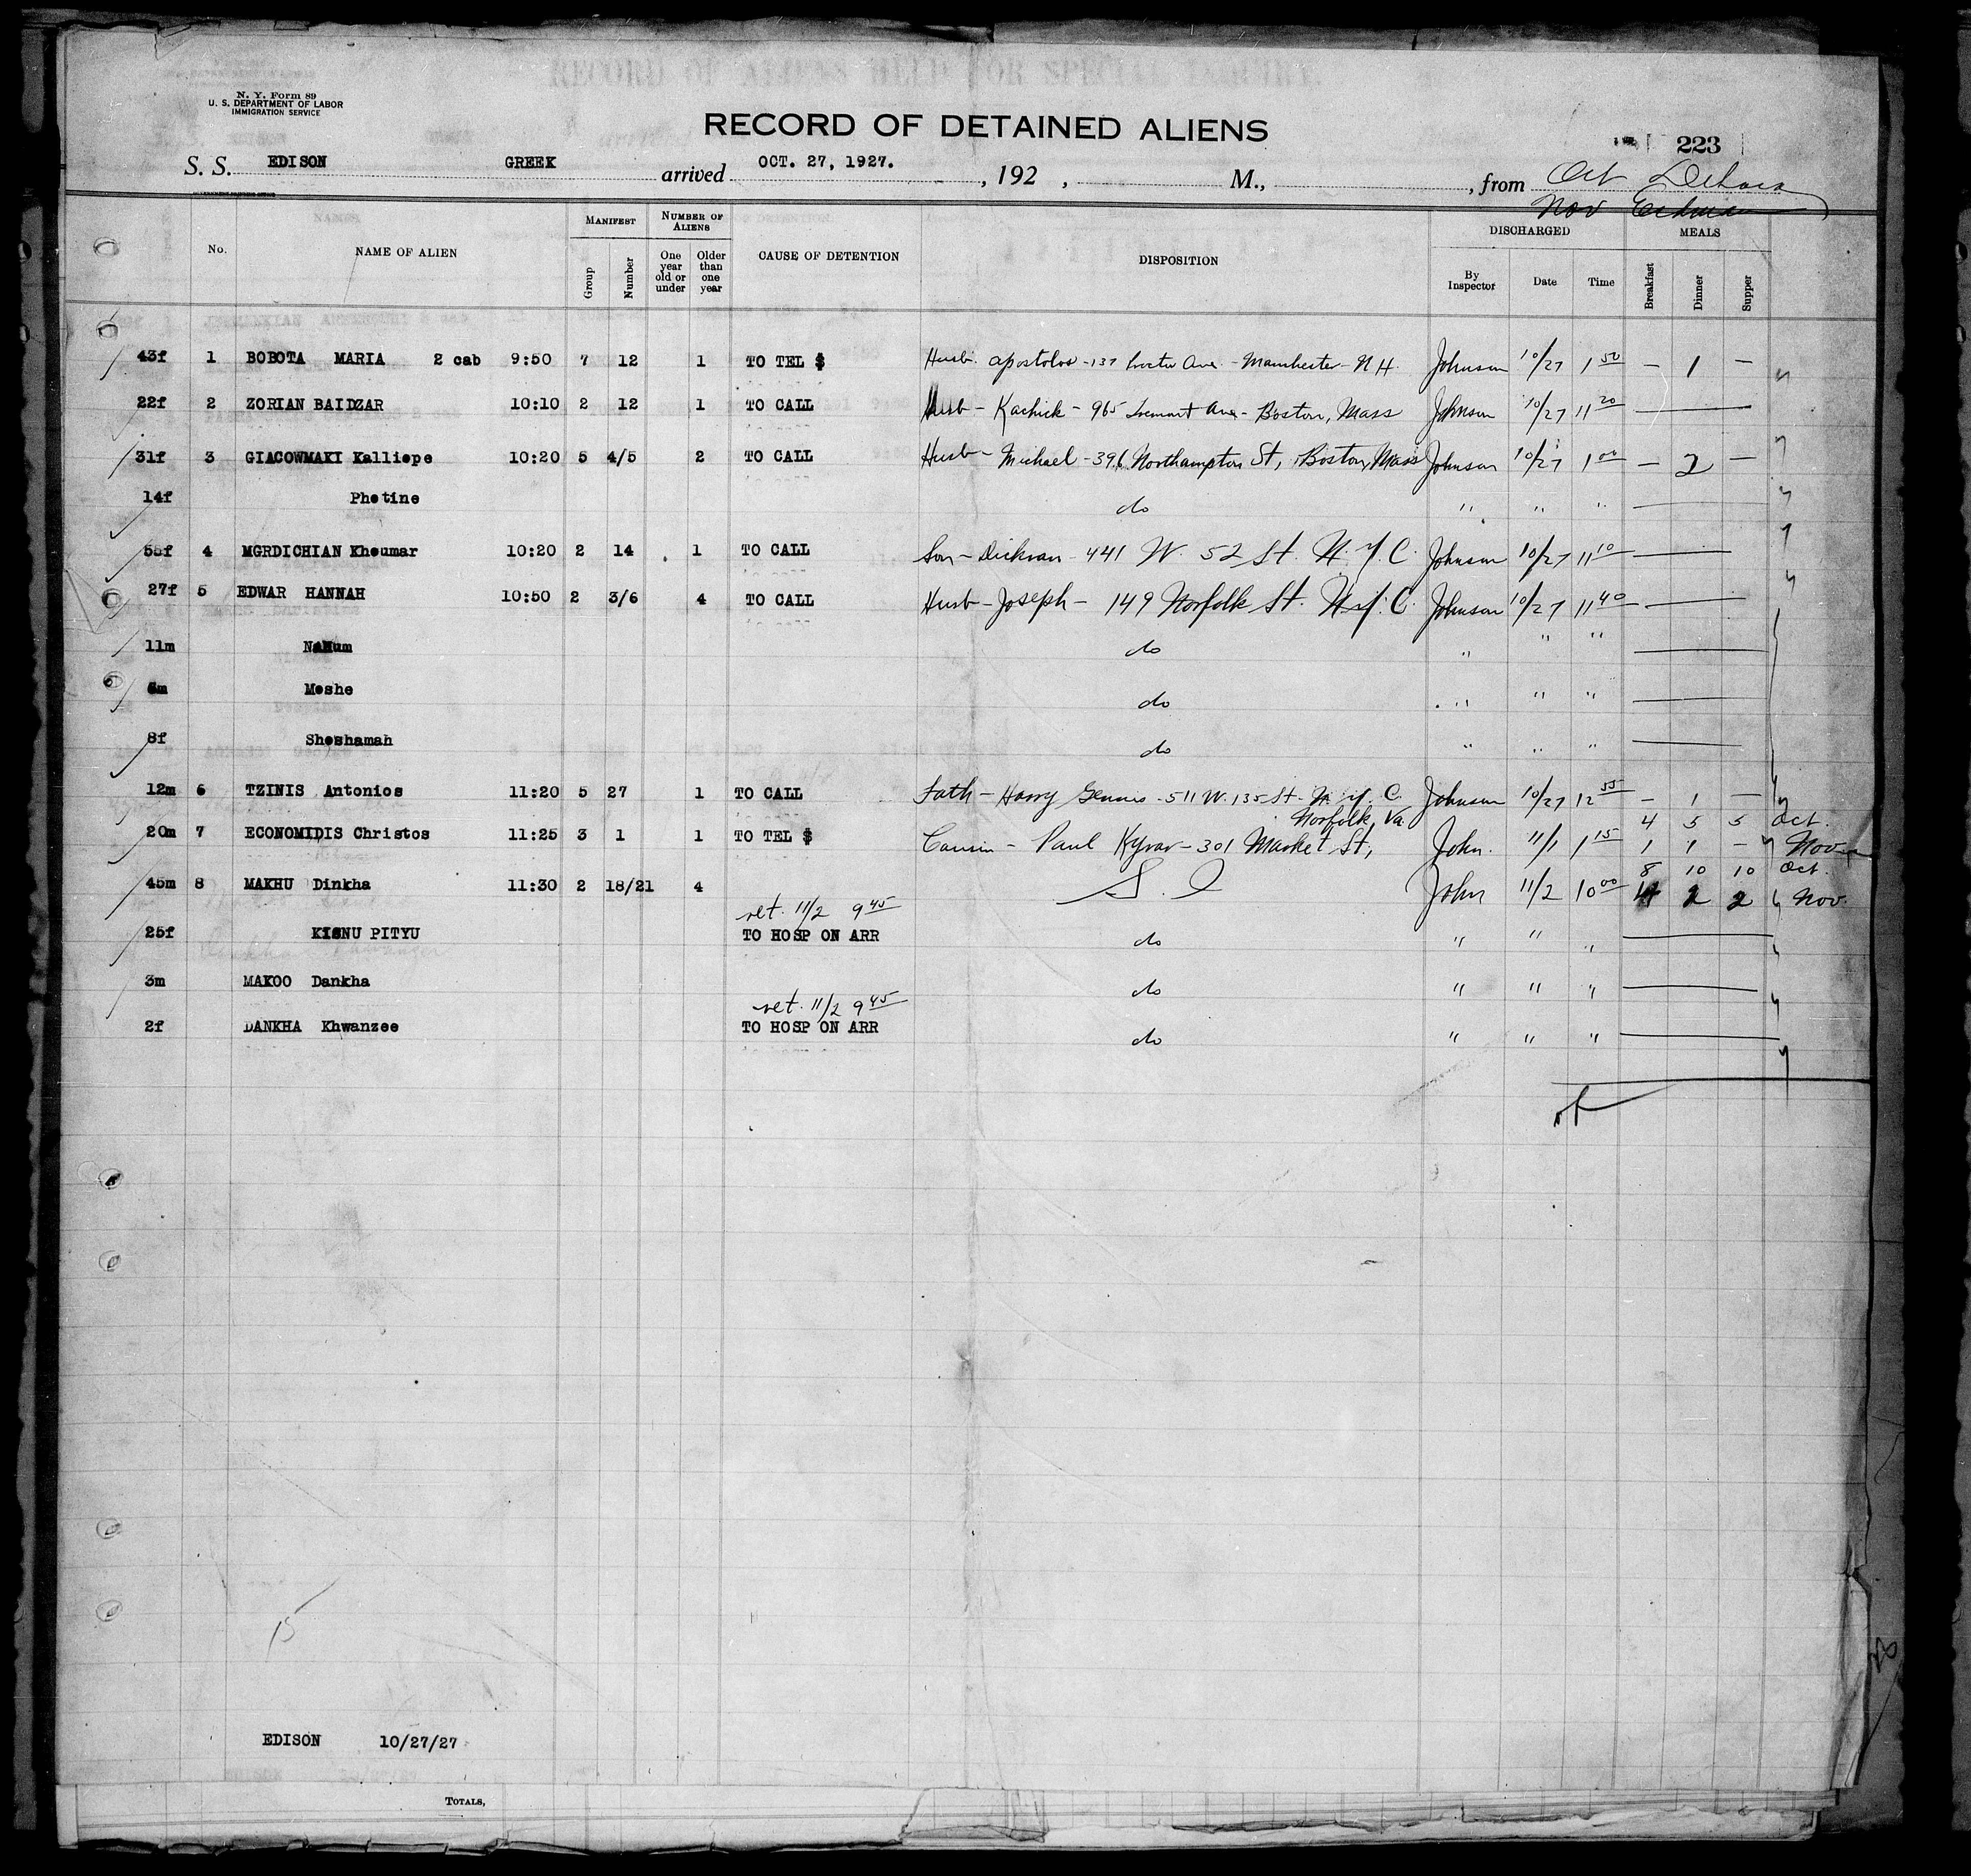 N. Y. Form 89
U. S. DEPARTMENT OF LABOR
IMMIGRATION SERVICE
RECORD OF ALIENS HELD FOR SPECIAL INQUIRY.
RECORD OF DETAINED ALIENS
223
S. S. EDISON GREEK arrived OCT. 27, 1927. , 192 , M., , from Oct
Nov
No. NAME OF ALIEN MANIFEST Group Number NUMBER OF ALIENS One year old or under Older than one year CAUSE OF DETENTION DISPOSITION DISCHARGED By Inspector Date Time MEALS Breakfast Dinner Supper
43f 1 BOBOTA MARIA 2 cab 9:50 7 12 1 TO TEL $ Husb. Apostolos - 137 Ave - Manchester - N H. Johnson 10/27 1 50 - 1 -
22f 2 ZORIAN BAIDZAR 10:10 2 12 1 TO CALL Husb - Kachick - 965 Tremont Ave - Boston, Mass Johnson 10/27 11 20
31f 3 GIACOWMAKI Kalliope 10:20 5 4/5 2 TO CALL Husb - Michael - 396 Northampton St, Boston, Mass Johnson 10/27 1 00 - 2 -
14f Photine do " " "
55f 4 MGRDICHIAN Khoumar 10:20 2 14 1 TO CALL Son - Dickran - 441 W. 52 St. N.Y.C. Johnson 10/27 11 10
27f 5 EDWAR HANNAH 10:50 2 3/6 4 TO CALL Husb - Joseph - 149 Norfolk St. N.Y.C. Johnson 10/27 11 40
11m Nahum do " " "
m Moshe do " " "
8f Shoshamah do " " "
12m 6 TZINIS Antonios 11:20 5 27 1 TO CALL Fath - Harry Gennis - 511 W. 135 St - N. Y. C. Johnson 10/27 12 55 - 1 -
Norfolk, Va. 4 5 5 Oct.
20m 7 ECONOMIDIS Christos 11:25 3 1 1 TO TEL $ Cousin - Paul Kyrav - 301 Market St, John. 11/1 1 15 1 1 - Nov
8 10 10 Oct.
45m 8 MAKHU Dinkha 11:30 2 18/21 4 S. I John 11/2 10 00 4 2 2 Nov.
ret. 11/2 9 45
25f KISNU PITYU TO HOSP ON ARR do " " "
3m MAKOO Dankha do " " "
ret. 11/2 9 45
2f DANKHA Khwanzee TO HOSP ON ARR do " " "
15
EDISON 10/27/27
TOTALS,